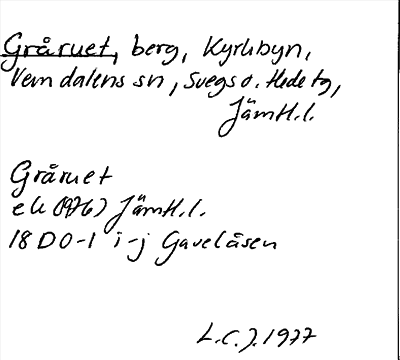 Gråruet, berg, Kyrkbyn,
Vemdalens sn, Svegs o. Hede tg,
Jämtl.l.
Gråruet
ek (1976) Jämtl.l.
18 D 0-1 i-j Gavelåsen
L.C.J. 1977